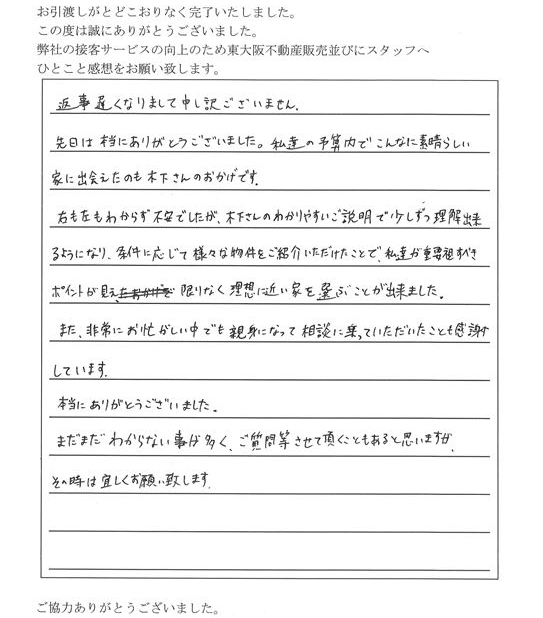 お引渡しがとどこおりなく完了いたしました。
この度は誠にありがとうございました。
弊社の接客サービスの向上のため東大阪不動産販売並びにスタッフへ
ひとこと感想をお願い致します。
返事遅くなりまして申し訳ございません。
先日は本当にありがとうございました。私達の予算内でこんなに素晴らしい
家に出会えたのも木下さんのおかげです。
右も左もわからず不安でしたが、木下さんのわかりやすいご説明で少しずつ理解出来
るようになり、条件に応じて様々な物件をご紹介いただけたことで、私達が重要視すべき
ポイントが見え、限りなく理想に近い家を選ぶことが出来ました。
また、非常にお忙しい中でも親身になって相談に乗っていただいたことも感謝
しています。
本当にありがとうございました。
まだまだわからない事が多く、ご質問等させて頂くこともあると思いますが、
その時は宜しくお願い致します。
ご協力ありがとうございました。